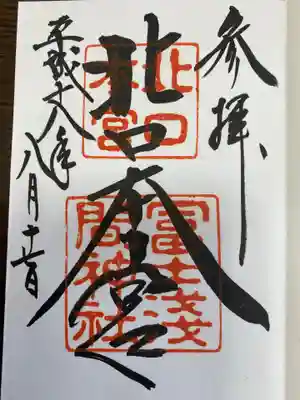 参拝
北口本宮
北口
本宮
冨士浅
間神社
平成十八年
八月